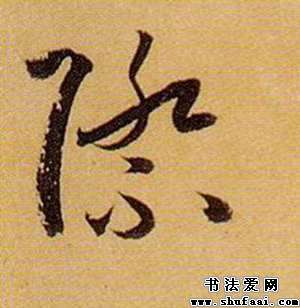 際
书法爱网
www.shufaai.com